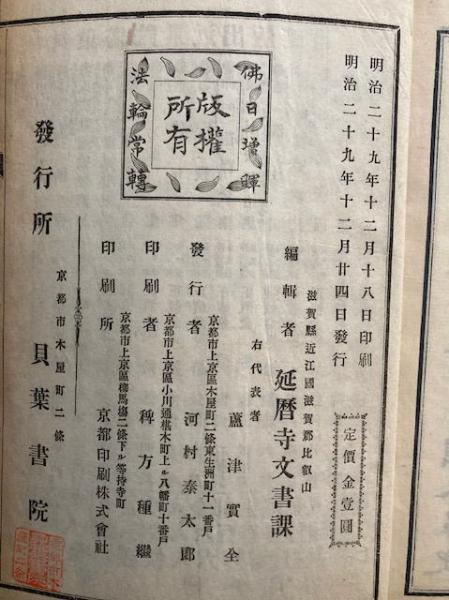 明治二十九年十二月十八日印刷
明治二十九年十二月廿四日發行
定價金壹圓
佛日增暉
法輪常轉
版權
所有
滋賀縣近江國滋賀郡比叡山
編輯者 延曆寺文書課
右代表者 蘆津實全
京都市上京區木屋町二條東生洲町十一番戶
發行者 河村泰太郎
京都市上京區小川通椹木町上ル八幡町十番戶
印刷者 稗方種繼
京都市上京區柳馬場二條下ル等持寺町
印刷所 京都印刷株式會社
京都市木屋町二條
發行所 貝葉書院